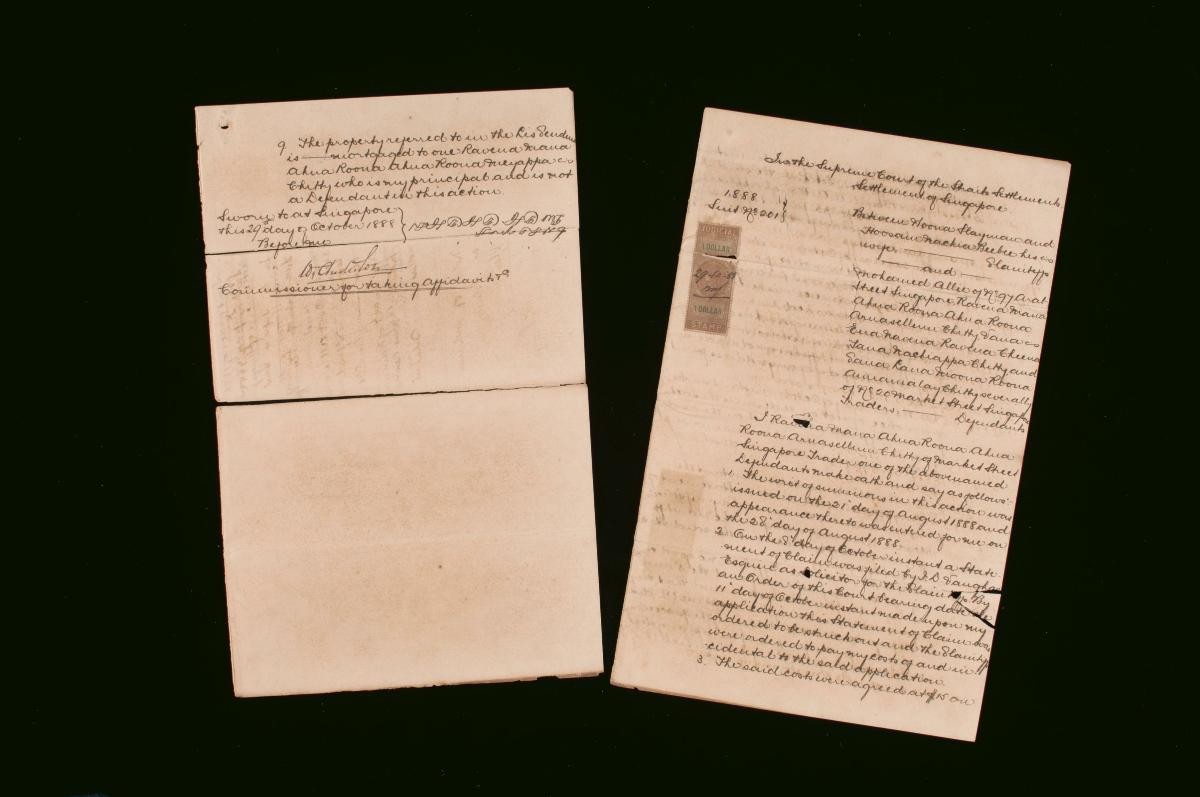 9 The property referred to in the Lis Pendens
is mortgaged to one Ravena Mana
Ahna Roona Ahna Roona Meyappa
Chitty who is my principal and is not
a Defendant in this action.
Sworn to at Singapore
this 29 day of October 1888
Before me
Commissioner for taking Affidavits &c
In the Supreme Court of the Straits Settlements
Settlement of Singapore.
1888
Suit No 201
Between Hoona Slayman and
Hoosain Nachia Beebee his
wife Plaintiffs
and
Mohamed Allie of No 97 Arab
Street Singapore, Ravena Mana
Ahna Roona Ahna Roona
Arnasellum Chitty Tana
Ena Navena Ravena Cheena
Tana Nachiappa Chitty and
Sana Rana Moona Roona
Annamalay Chitty severally
of No 20 Market Street Singapore
Traders. Defendants
JUDICIAL
1 DOLLAR
1 DOLLAR
STAMP
I Ravena Mana Ahna Roona Ahna
Roona Arnasellum Chitty of Market Street
Singapore Trader one of the abovenamed
Defendants make oath and say as follows:-
1. The writ of summons in this action was
issued on the 21 day of August 1888 and
appearance thereto was entered for me on
the 28 day of August 1888.
2. On the 8 day of October instant a State-
ment of Claim was filed by J. D. Vaughan
Esquire as solicitor for the Plaintiffs. By
an Order of this Court bearing date the
11 day of October instant made upon my
application this Statement of Claim was
ordered to be struck out and the Plaintiffs
were ordered to pay my costs of and in-
cidental to the said application.
3. The said costs were agreed at $15 on